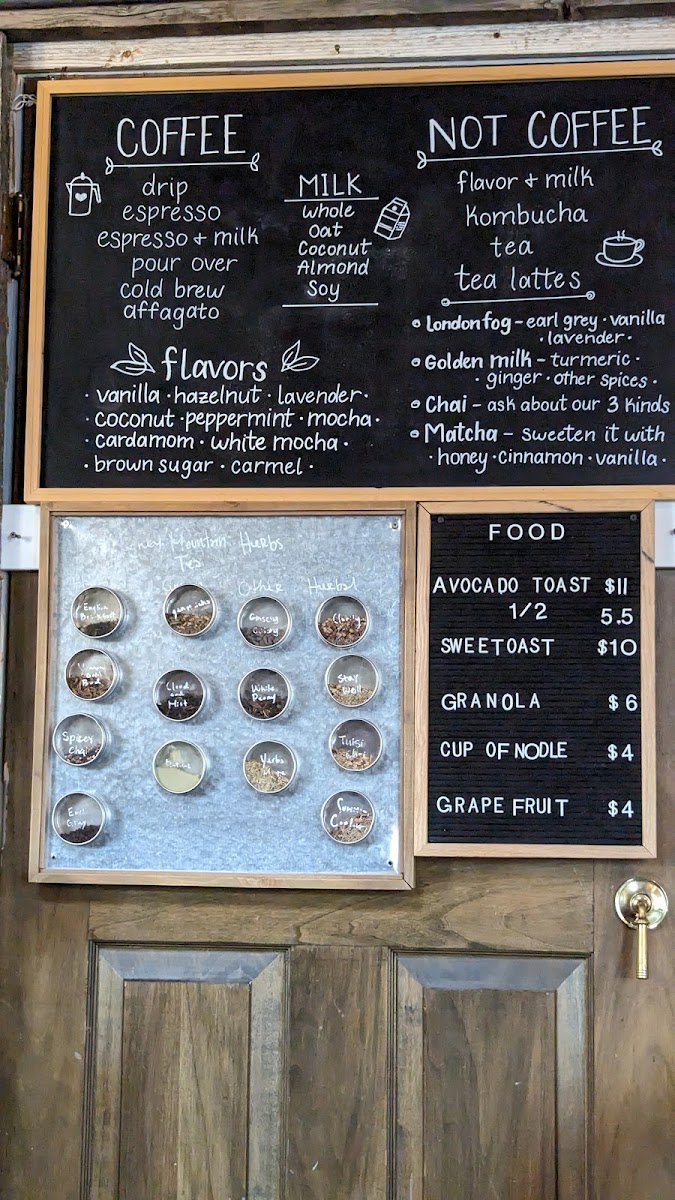 COFFEE
drip
espresso
espresso + milk
pour over
cold brew
affagato
MILK
whole
oat
Coconut
Almond
Soy
NOT COFFEE
flavor + milk
Kombucha
tea
tea lattes
Londonfog - earl grey · vanilla
· lavender ·
Golden milk - turmeric ·
· ginger · other spices ·
Chai - ask about our 3 kinds
Matcha - sweeten it with
· honey · cinnamon · vanilla ·
flavors
· vanilla · hazelnut · lavender ·
· coconut · peppermint · mocha ·
· cardamom · white mocha ·
· brown sugar · carmel ·
Mountain Herbs
Tea
Other
Herbal
English
Breakfast
Spicey
Chai
Earl
Grey
Cloud
and
Mist
White
Peony
Stay
Well
Tulsi
FOOD
AVOCADO TOAST $11
1/2 5.5
SWEETOAST $10
GRANOLA $6
CUP OF NODLE $4
GRAPE FRUIT $4